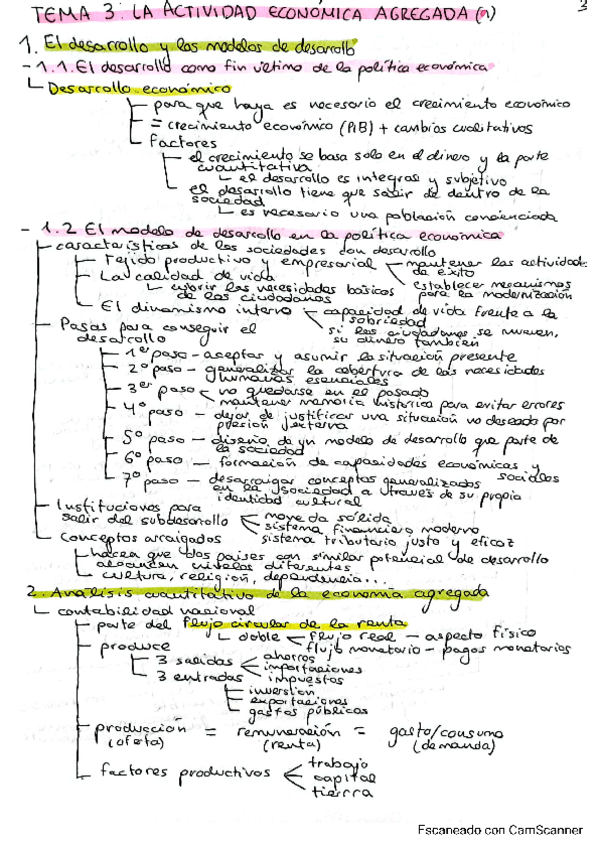 TEMA 3: LA ACTIVIDAD ECONÓMICA AGREGADA (1)
1. El desarrollo y los modelos de desarrollo
- 1.1. El desarrollo como fin último de la política económica
Desarrollo económico
para que haya es necesario el crecimiento económico
= crecimiento económico (PIB) + cambios cualitativos
Factores
el crecimiento se basa solo en el dinero y la parte
cuantitativa
el desarrollo es integras y subjetivo
el desarrollo tiene que salir de dentro de la
sociedad
es necesario una población concienciada
- 1.2 El modelo de desarrollo en la política económica
características de las sociedades con desarrollo
Tejido productivo y empresarial
mantener las actividades
de éxito
establecer mecanismos
para la modernización
La calidad de vida
cubrir las necesidades básicos
de los ciudadanos
El dinamismo interno
capacidad de vida frente a la
sobriedad
si los ciudadanos se mueven,
su dinero también
Pasos para conseguir el
desarrollo
1er paso - aceptar y asumir la situación presente
2º paso - generalizar la cobertura de las necesidades
humanas esenciales
3er paso
no quedarse en el pasado
mantener memoria histórica para evitar errores
4º paso - dejar de justificar una situación no deseada por
presión externa
5º paso - diseño de un modelo de desarrollo que parte de
la sociedad
6º paso - formación de capacidades económicas y sociales
7º paso - desarraigar conceptos generalizados
en la sociedad a través de su propia
identidad cultural
Instituciones para
salir del subdesarrollo
moneda sólida
sistema financiero moderno
sistema tributario justo y eficaz
Conceptos arraigados
hacen que dos países con similar potencial de desarrollo
alcancen niveles diferentes
cultura, religión, dependencia...
2. Análisis cuantitativo de la economía agregada
contabilidad nacional
parte del flujo circular de la renta
doble
flujo real - aspecto físico
flujo monetario - pagos monetarios
produce
3 salidas
ahorros
importaciones
impuestos
3 entradas
inversión
exportaciones
gastos públicos
producción = remuneración = gasto/consumo
(oferta) (renta) (demanda)
factores productivos
trabajo
capital
tierra
Escaneado con CamScanner